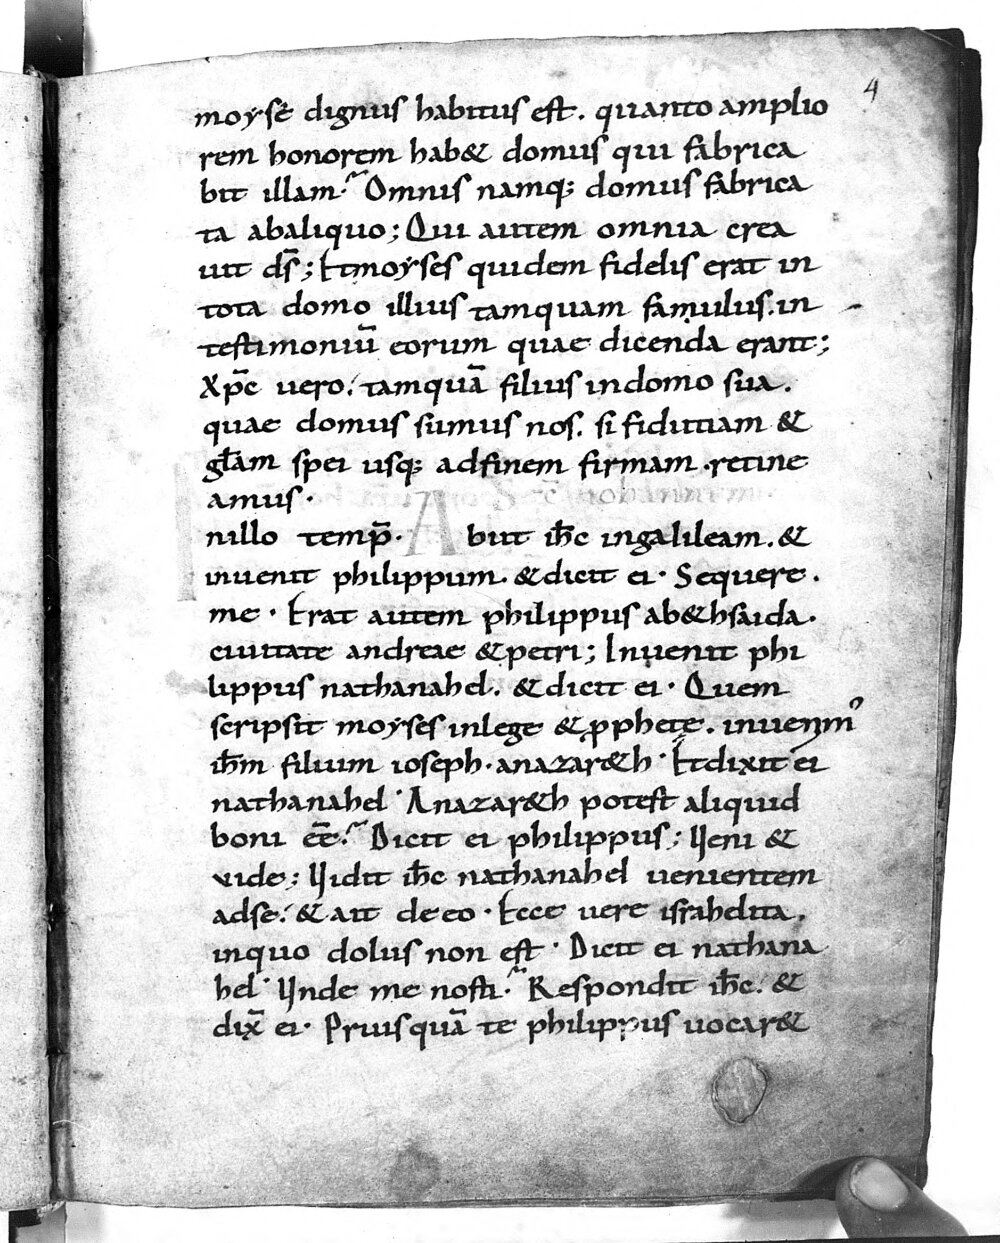 4
moẏsẽ dignus habitus est. quanto amplio
rem honorem hab& domus qui fabrica
bit illam. Omnis namq; domus fabrica
ta abaliquo; Qui autem omnia crea
uit d̄s; Etmoẏses quidem fidelis erat in
tota domo illius tamquam famulus. in
testimoniū eorum quae dicenda erant;
Xp̄c uero. tamquā filius indomo sua.
quae domus sumus nos. si fidutiam &
głam spei usq; adfinem firmam. retine
amus.
nillo temp̄. A biit ih̄c ingalileam. &
inuenit philippum. &dicit ei. Sequere.
me. Erat autem philippus ab&hsaida.
ciuitate andreae &petri; Inuenit phi
lippus nathanahel. &dicit ei. Quem
scripsit moẏses inlege &p̄phetę. inuenim'
ih̄m filium ioseph. anazar&h. Etdixit ei
nathanahel. Anazar&h potest aliquid
boni ēe. Dicit ei philippus; Ueni &
uide; Uidit ih̄c nathanahel uenientem
adse. & ait deeo. Ecce uere israhelita.
inquo dolus non est. Dicit ei nathana
hel. Unde me nosti. Respondit ih̄c. &
dix̄ ei. Priusquā te philippus uocar&